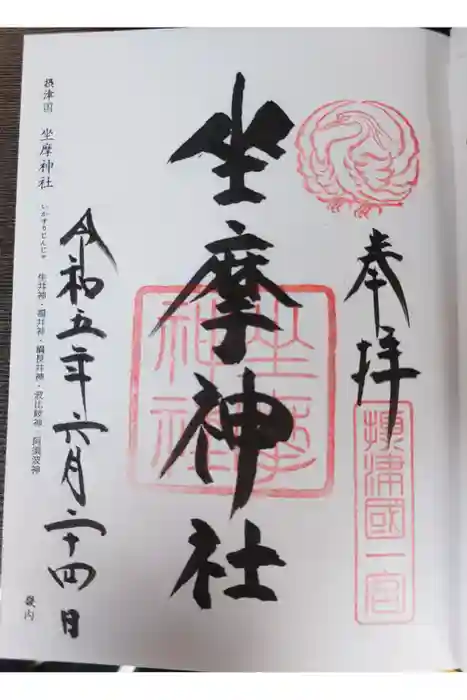 奉拝
摂津國一宮
坐摩神社
坐摩神社
令和五年六月二十四日
摂津国 坐摩神社 いかすりじんじゃ
生井神・福井神・綱長井神・波比祇神・阿須波神
畿内